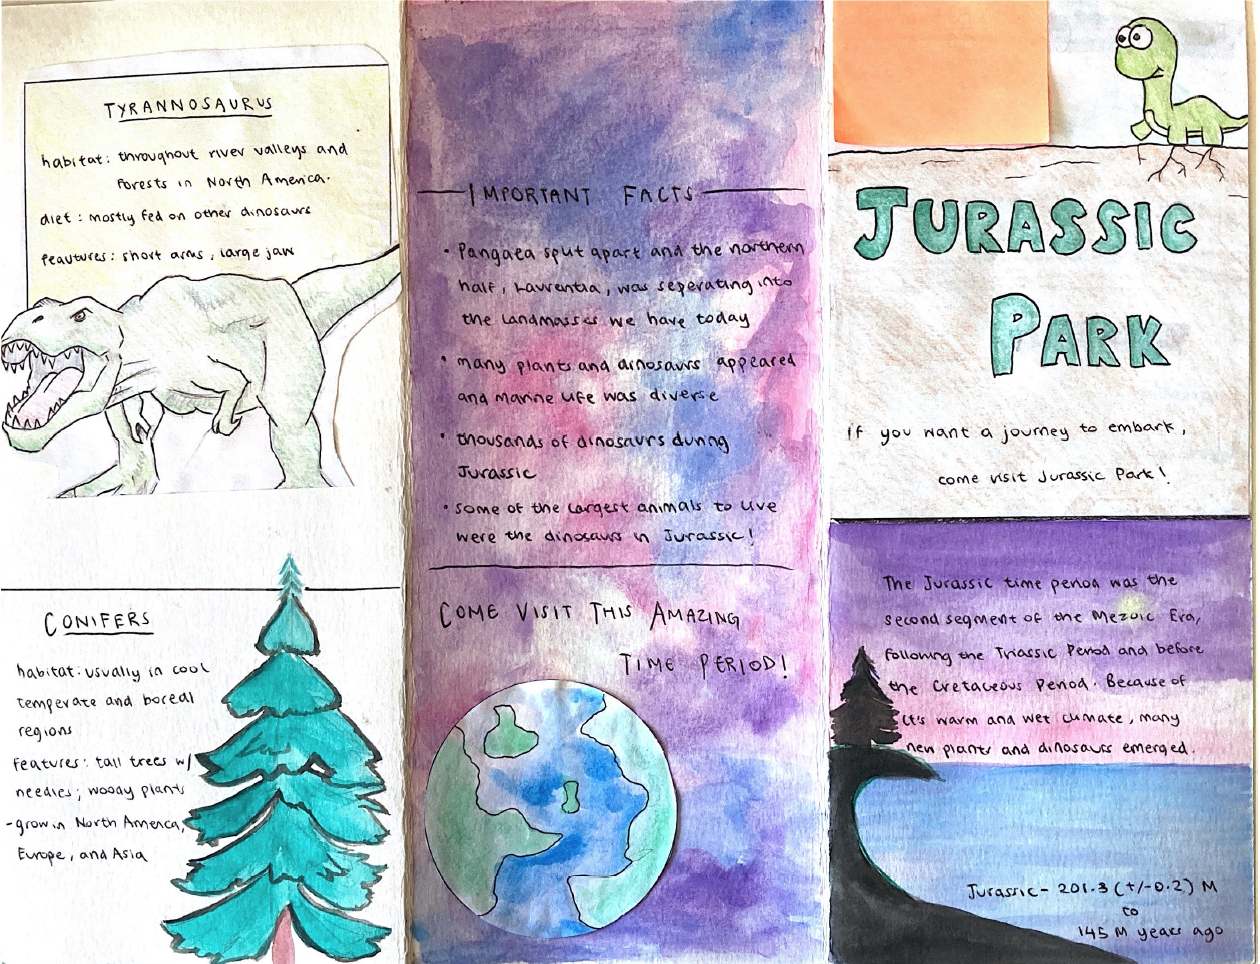 TYRANNOSAURUS
habitat: throughout river valleys and
forests in North America.
diet: mostly fed on other dinosaurs
feautures: short arms, large jaw
CONIFERS
habitat: usually in cool
temperate and boreal
regions
features: tall trees w/
needles; woody plants
-grow in North America,
Europe, and Asia
IMPORTANT FACTS
• Pangaea split apart and the northern
half, Laurentia, was seperating into
the landmasses we have today
• many plants and dinosaurs appeared
and marine life was diverse
• thousands of dinosaurs during
Jurassic
• some of the largest animals to live
were the dinosaurs in Jurassic!
COME VISIT THIS AMAZING
TIME PERIOD!
JURASSIC
PARK
If you want a journey to embark,
come visit Jurassic Park!
The Jurassic time period was the
second segment of the Mezoic Era,
following the Triassic Period and before
the Cretaceous Period. Because of
it's warm and wet climate, many
new plants and dinosaurs emerged.
Jurassic- 201.3 (+/-0.2) M
to
145 M years ago